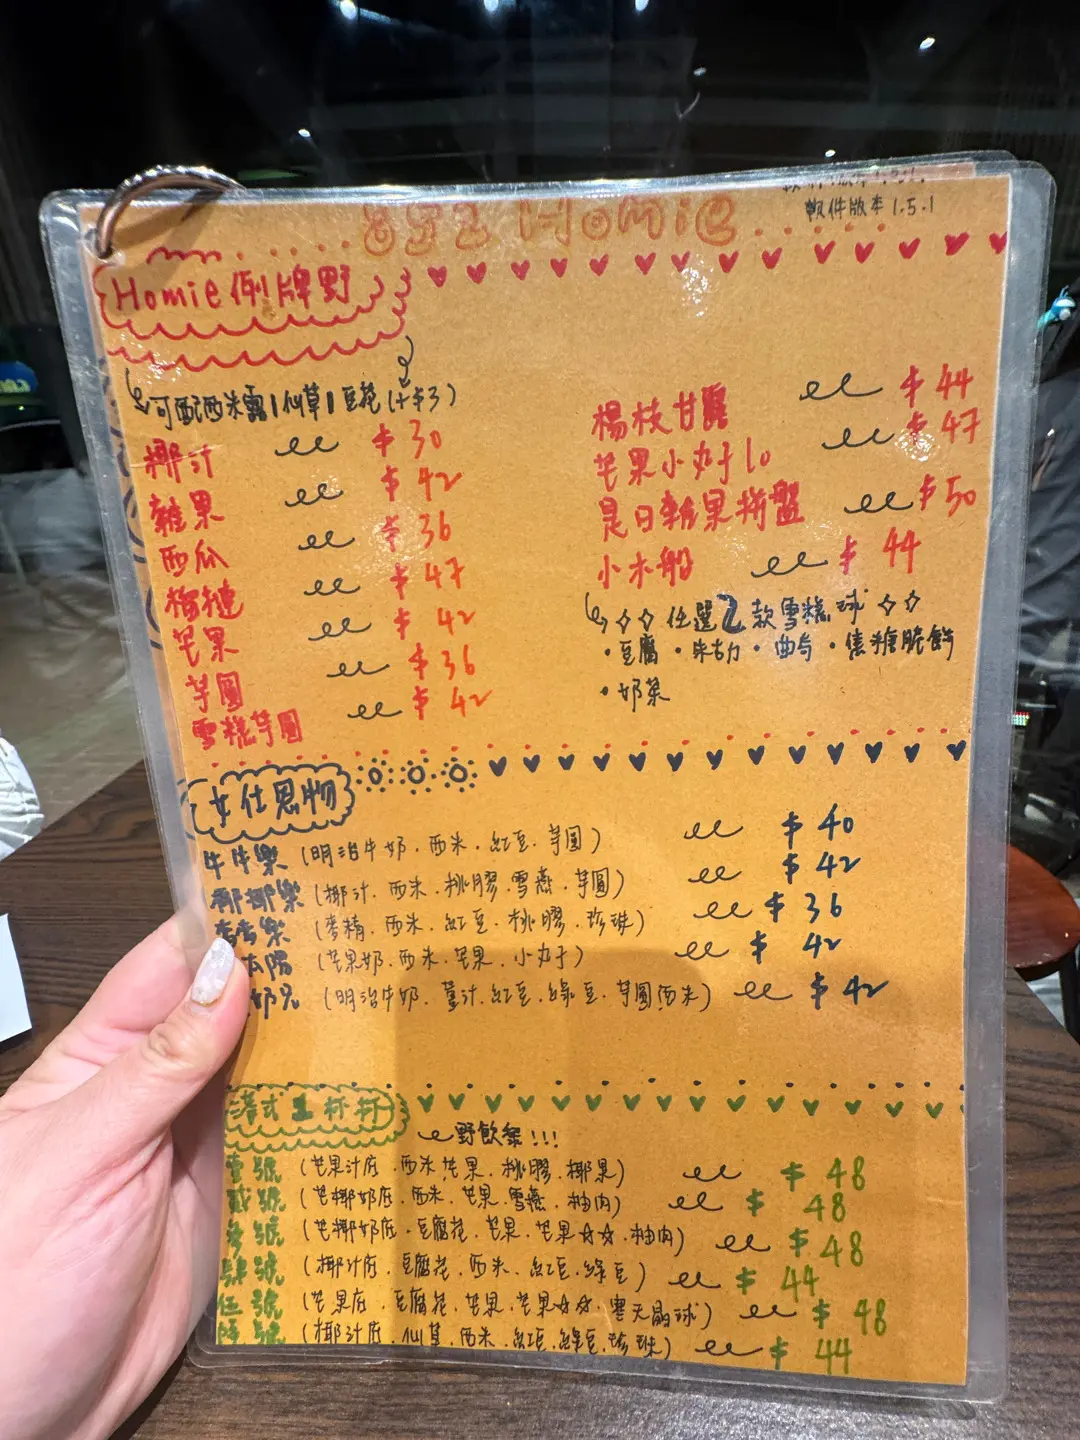 852 Homie
軟件版本1.5.1
Homie例牌野
可配西米露/仙草/豆花(+$3)
椰汁 $30
雜果 $42
西瓜 $36
榴槤 $47
芒果 $42
芋圓 $36
雪糕芋圓 $42
楊枝甘露 $44
芒果小丸子10 $47
是日雜果拼盤 $50
小木船 $44
任選2款雪糕球
•豆腐•朱古力•曲奇•焦糖脆餅
•奶茶
女仕恩物
牛牛樂(明治牛奶.西米.紅豆.芋圓) $40
椰椰樂(椰汁.西米.桃膠.雪燕.芋圓) $42
麥麥樂(麥精.西米.紅豆.桃膠.珍珠) $36
太陽(芒果奶.西米.芒果.小丸子) $42
奶兄(明治牛奶.薑汁.紅豆.綠豆.芋圓西米) $42
港式 杯杯
野飲築!!!
壹號(芒果汁底.西米芒果.桃膠.椰果) $48
貳號(芒椰奶底.西米.芒果.雪燕.柚肉) $48
參號(芒椰奶底.豆腐花.芒果.芒果☆☆.柚肉) $48
肆號(椰汁底.豆腐花.西米.紅豆.綠豆) $44
伍號(芒果底.豆腐花.芒果.芒果☆☆.寒天晶球) $48
陸號(椰汁底.仙草.西米.紅豆.綠豆.珍珠) $44